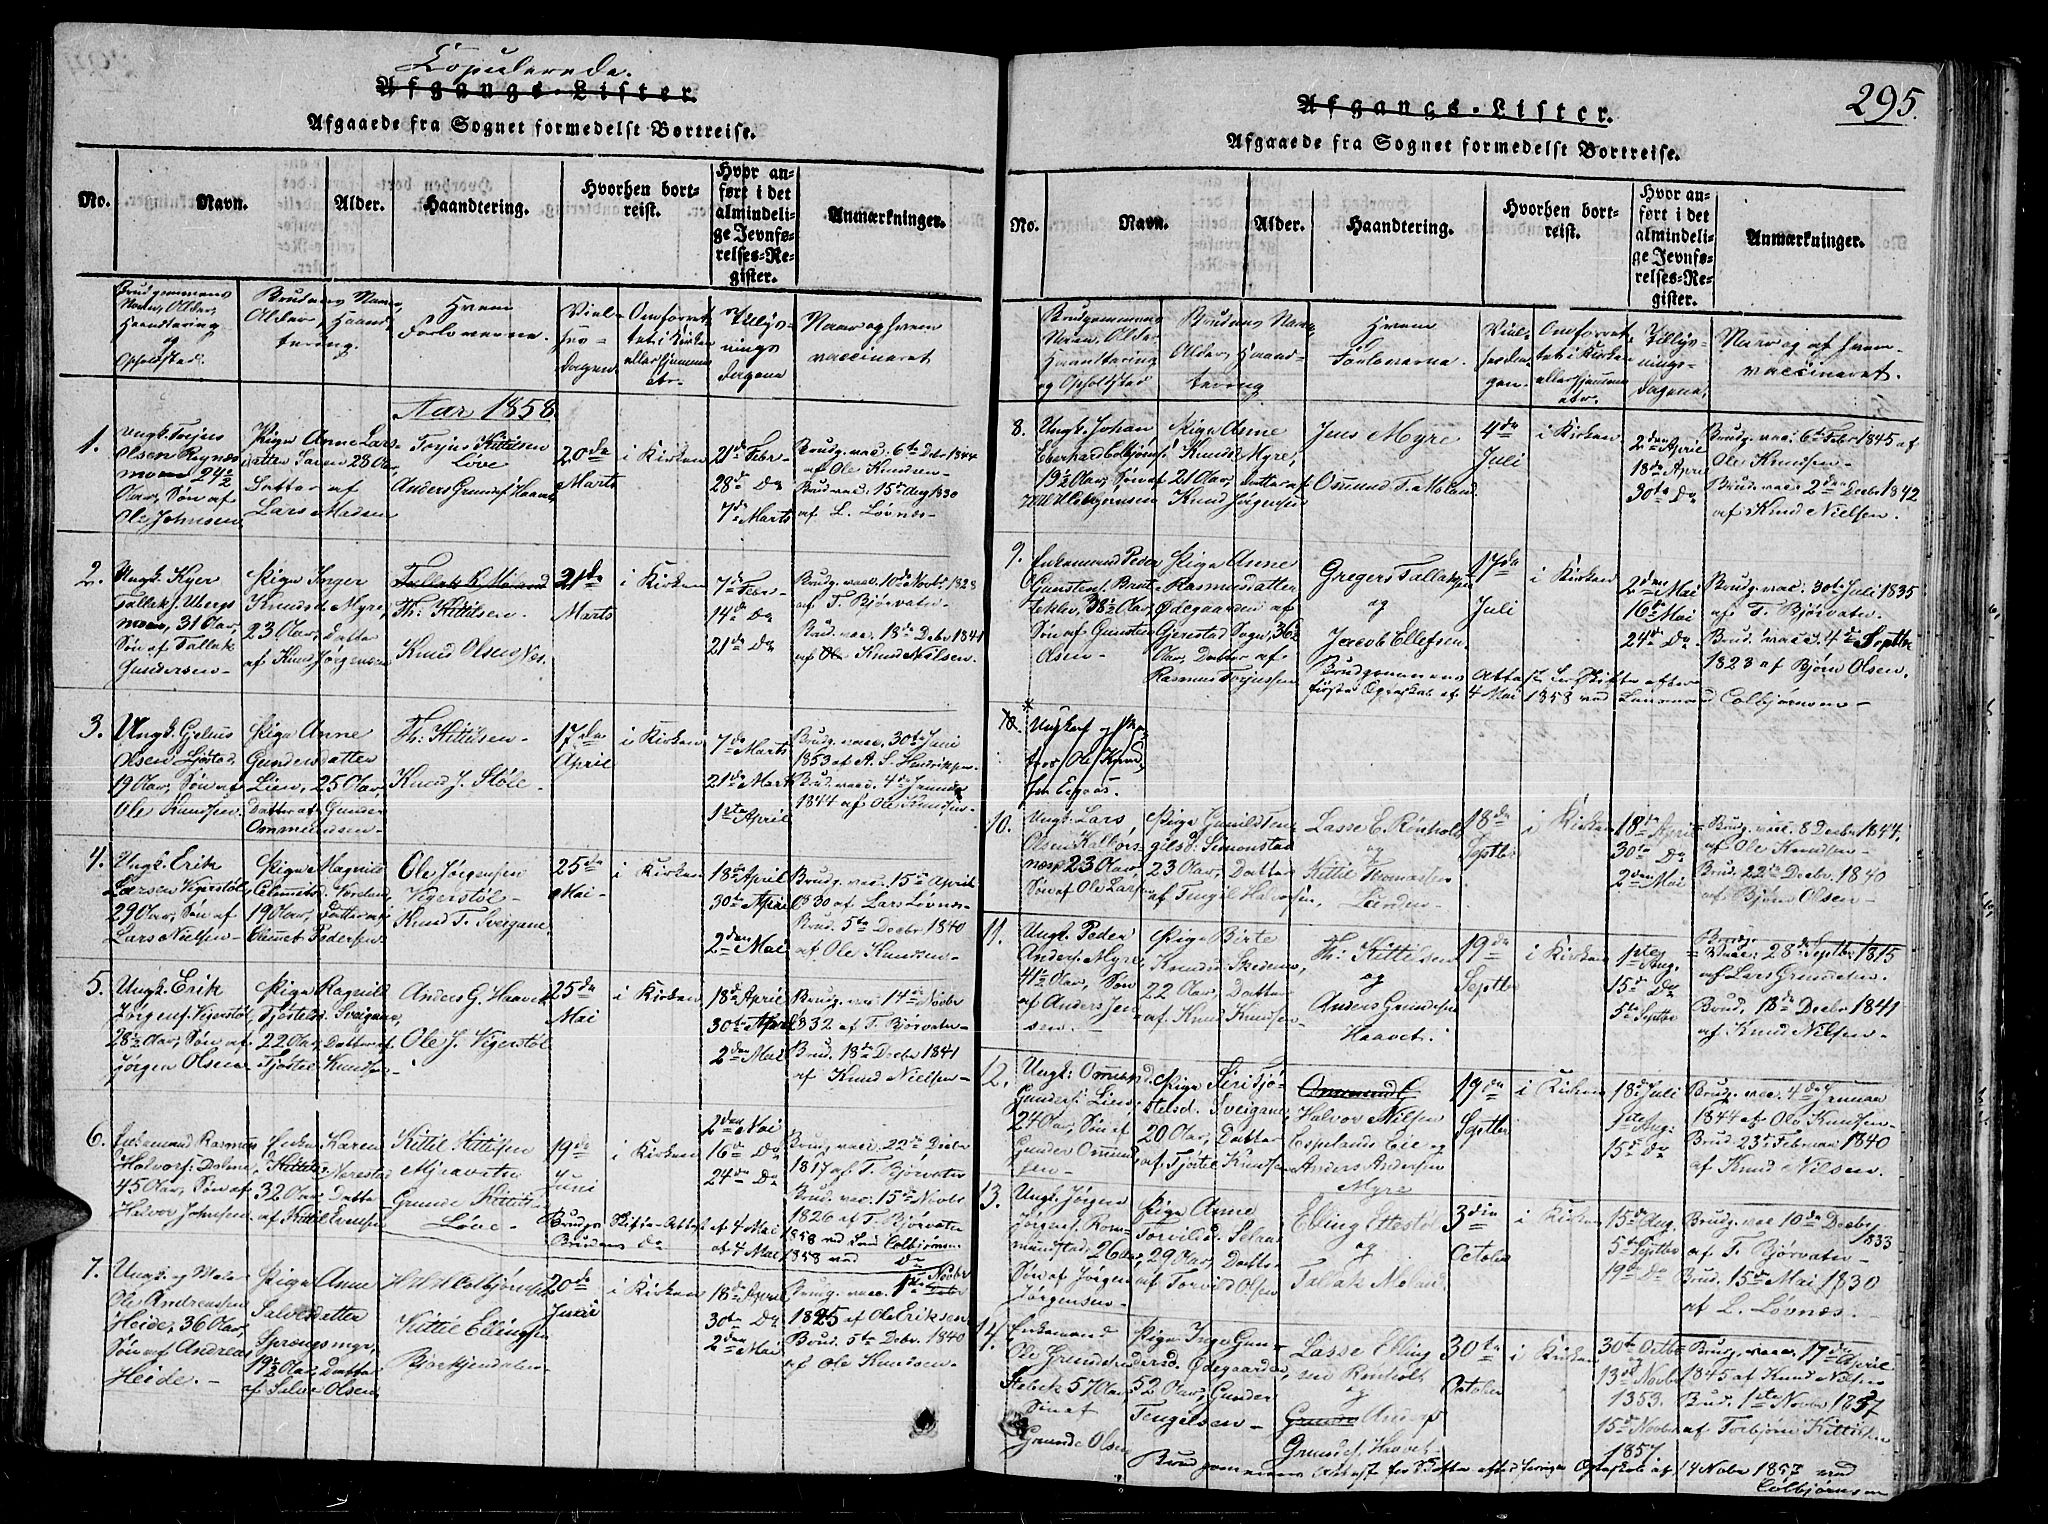 Copulerede.
Afgangs-Lister.
Afgaaede fra Sognet formedelst Bortreise.
No.
Navn.
Alder.
Haandtering.
Hvorhen bort-
reist.
Hvor an-
ført i det
almindeli-
ge Jevnfø-
relses-Re-
gister.
Anmærkninger.
Brudgommens
Navn, Alder,
Haandtering
og
Opholdsted.
Brudens Navn,
Alder, Haand-
tering.
Hvem
Forloverne.
Viel-
ses-
Dagen
Om forret-
tet i Kirken
eller hjemme
etc.
Tillys-
nings
dagene
Naar og hvem
vaccineret
Aar 1858
1.
Ungk. Torjus
Olsen
24½
Aar, Søn af
Ole Johnsen
Pige Anne Lars-
datter 28 Aar,
Datter af
Lars Madsen
Torjus Kittilsen
Løve
Anders Grundes. Haavet
20de
Marts
i Kirken
21de Febr
28de Do
7de Marts
Brudg. vac. 6te Debr 1844
af Ole Knudsen
Brud vac. 15de Aug 1830
af L. Løvnæs
2.
Ungk. Kjer
Tallaks. Ubergs
moen, 31 Aar,
Søn af Tallak
Gundersen
Pige Inger
Knudsd. Myre,
23 Aar, Datter
af Knud Jørgensen
Th: Kittilsen
Knud Olsen Næs.
21de
Marts
i Kirken
7de Febr
14de Do
21de Do
Brudg. vac. 10de Novbr 1828
af T. Bjørvatn
Brud. vac. 18de Debr 1841
af Knud Nielsen.
3.
Ungk. Gjelus
Olsen Ljøstad
19 Aar, Søn af
Ole Knudsen
Pige Anne
Gundersdatter
Lien, 25 Aar,
Datter af Gunder
Ommundsen
Th: Kittilsen
Knud J. Støle
17de
April
i Kirken
7de Marts
21de Marts
1ste April
Brudg. vac. 30te Juni
1853 af A. S. Henriksen
Brud vac. 4de Januar
1844 af Ole Knudsen
4.
Ungk. Erik
Larsen Vigerstøl
29 Aar, Søn af
Lars Nielsen
Pige Magnild
Clemetsd.
19 Aar, Datter af
Clemet Pedersen
Ole Jørgensen
Vigerstøl
Knud T. Sveigane
25de
Mai
i Kirken
18de April
30te April
2den Mai
Brudg. vac. 15de April
1830 af Lars Løvnæs
Brud. 5te Decbr 1840
af Ole Knudsen
5.
Ungk. Erik
Jørgens. Vigerstøl,
28½ Aar, Søn af
Jørgen Olsen
Pige Ragnild
Tjøstelsd. Sveigane,
22 Aar, Datter af
Tjøstel Knudsen
Anders G. Haavet
Ole J. Vigerstøl
25de
Mai
i Kirken
18de April
30te April
2den Mai
Brudg. vac. 14de Novbr
1832 af T. Bjørvatn
Brud. 18de Decbr 1841
af Knud Nielsen
6.
Enkemand Rasmus
Halvors. Dalene
45 Aar, Søn af
Halvor Johnsen
Enke Karen
Kittilsd.
32 Aar, Datter
af Kittil Evensen
Kittil Kittilsen
Mjaavatn
Grunde Kittilsen
Løve
19de
Juni
i Kirken
2den Mai
16de Do
24de Do
Brudg. vac. 22de Decbr
1817 af T. Bjørvatn
Brud. vac. 15de Novbr
1826 af T. Bjørvatn
Brudgs Skifte-Attest af 4 Mai 1858 ved Colbjørnsen
Brudens Do af 4 Mai 1858 ved Do
7.
Ungk. og Maler
Ole Andreassen
Heide, 36 Aar,
Søn af Andreas
Heide.
Pige Anne
Salvesdatter
Sprøngsmyr,
19½ Aar, Datter
af Salve Olsen
Colbjørnsen
Kittil Ellingsen
20de
Juni
i Kirken
18de April
30te Do
2den Mai
Brudg. vac. 1ste Novbr
1825 af Ole Eriksen
Brud. 5te Debr. 1840
af Ole Knudsen
295.
Afgangs-Lister.
Afgaaede fra Sognet formedelst Bortreise.
No.
Navn.
Alder.
Haandtering.
Hvorhen bort-
reist.
Hvor an-
ført i det
almindeli-
ge Jevnfø-
relses-Re-
gister.
Anmærkninger.
Brudgommens
Navn, Alder,
Haandtering
og Opholdsted
Brudens Navn
Alder, Haand-
tering
Hvem
Forloverne.
Viel-
sesda-
gen.
Om forret-
tet i Kirken
eller hjemme
etc.
Tillys-
nings-
dagene.
Naar og af hvem
vaccineret.
8.
Ungk. Johan
Eberhard Colbjørns.
19½ Aar, Søn af
Pige Anne
Knudsd. Myre,
21 Aar, Datter af
Knud Jørgensen
Jens Myre
Osmund T. Moland
4de
Juli
i Kirken
2den April
18de April
30te Do
Brudg. vac. 6te Febr 1845 af
Ole Knudsen
Brud. vac. 2den Decbr 1842
af Knud Nielsen.
9.
Enkemand Peder
Gunstens. Bræt-
tekler, 38½ Aar,
Søn af Gunsten
Olsen
Pige Anne
Rasmusdatter
Ødegaarden af
Gjerestad Sogn, 36½
Aar, Datter af
Rasmus Torjussen
Gregers Tallaksen
og
Jacob Ellefsen
17de
Juli
i Kirken
2den Mai
16de Mai
24de Do
Brudg. vac. 30te Juli 1835
af T. Bjørvatn
Brud. vacc. 4de Septbr
1823 af Bjørn Olsen.
Brudgommens Attest for Skifte efter
første Egteskab af 4 Mai 1858 ved Lensmand Colbjørnsen
10.
Ungkarl og
Ole
10.
Ungk. Lars
Olsen
23 Aar,
Søn af Ole Larsen
Pige Gunild Ten-
gilsd. Simonstad
23 Aar, Datter
af Tengil Halvorsen,
Lasse E. Rønholt
og
Kittil Thomassen
Lunden
18de
Septbr
i Kirken
18de April
30te Do
2den Mai
Brudg. vac. 8 Decbr 1844.
af Ole Knudsen
Brud. 22de Decbr. 1840
af Bjørn Olsen
11.
Ungk. Peder
Anders. Myre,
41½ Aar, Søn
af Anders Jen-
sen.
Pige Birte
Knudsd. Skeimo,
22 Aar, Datter
af Knud Knudsen
Th: Kittilsen
og
Anders Grundesen
Haavet.
19de
Septbr
i Kirken
1ste Aug.
15de Do
5te Septbr
Brudg.
vac. 28de Septbr 1815
af Lars Grundesen
Brud, 18de Decbr 1841
af Knud Nielsen.
12.
Ungk: Ommund
Gunders. Lien,
24 Aar, Søn af
Gunder Ommund-
sen
Pige Siri Tjø-
stelsd. Sveigane,
20 Aar, Datter
af Tjøstil Knudsen
Halvor Nilsen
Espelands Eie og
Anders Andersen
Myre
19de
Septbr
i Kirken
18de Juli
1ste Aug:
15de Do
Brudg. vac. 4de Januar
1844 af Ole Knudsen
Brud. 23de Februar 1840
af Knud Nilsen.
13.
Ungk. Jørgen
Jørgens. Rom-
mundstad, 26 Aar,
Søn af Jørgen
Jørgensen
Pige Anne
Torvildsd. Selaas
29 Aar, Datter
af Torvild Olsen
Elling Ettestøl
og
Tallak Moland
3die
October
i Kirken
15de Aug.
5te Septbr
19de Do
Brudg. vac 10de Decbr
1833
af T. Bjørvatn
Brud. 15de Mai 1830
af L. Løvnæs
14.
Enkemand
Ole Grundesen
57 Aar,
Søn af
Grunde Olsen
Pige Inge Gun-
dersd. Ødegaarden,
52 Aar, Gunder
Tengelsen
Lasse Elling-
sen Rønholt
og
Grunde Anders
Grundes. Haavet
30te
October
i Kirken
30te Octbr
13de Novbr
1853.
15de Novbr
1857
Brudg. vac. 17de April
1845 af Knud Nielsen
Brud. 1ste Novbr 1857
af Torbjørn Kittilsen
Brudgommens Attest for Skifte efter forrige Egteskab af 14 Novbr 1857 ved
Colbjørnsen